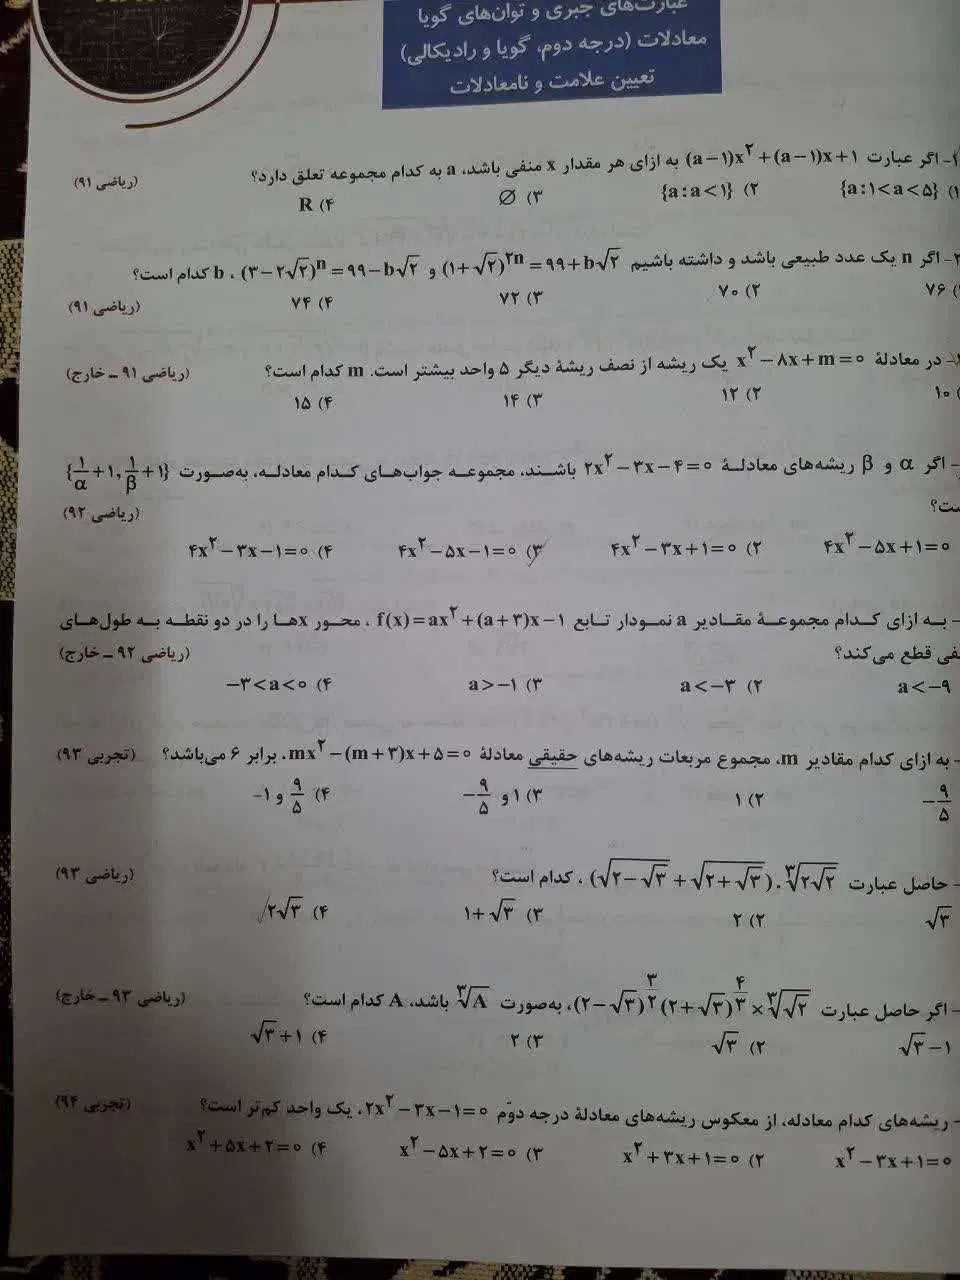 عبارت‌های جبری و توان‌های گویا
معادلات (درجه دوم، گویا و رادیکالی)
تعیین علامت و نامعادلات
۱- اگر عبارت (a-۱)x²+(a-۱)x+۱ به ازای هر مقدار x منفی باشد، a به کدام مجموعه تعلق دارد؟ (ریاضی ۹۱)
۱) {a:۱<a<۵} ۲) {a:a<۱} ۳) ∅ ۴) R
۲- اگر n یک عدد طبیعی باشد و داشته باشیم (۱+√۲)²ⁿ=۹۹+b√۲ و (۳-۲√۲)ⁿ=۹۹-b√۲ ، b کدام است؟
۷۶ ۲) ۷۰ ۳) ۷۲ ۴) ۷۴ (ریاضی ۹۱)
- در معادلهٔ x²-۸x+m=۰ یک ریشه از نصف ریشهٔ دیگر ۵ واحد بیشتر است. m کدام است؟ (ریاضی ۹۱ ـ خارج)
۱۰ ۲) ۱۲ ۳) ۱۴ ۴) ۱۵
- اگر α و β ریشه‌های معادلهٔ ۲x²-۳x-۴=۰ باشند، مجموعه جواب‌های کدام معادله، به‌صورت {۱/α+۱, ۱/β+۱}
ست؟ (ریاضی ۹۲)
۴x²-۵x+۱=۰ ۲) ۴x²-۳x+۱=۰ ۳) ۴x²-۵x-۱=۰ ۴) ۴x²-۳x-۱=۰
- به ازای کدام مجموعهٔ مقادیر a نمودار تابع f(x)=ax²+(a+۳)x-۱ ، محور xها را در دو نقطه به طول‌های
نفی قطع می‌کند؟ (ریاضی ۹۲ ـ خارج)
a<-۹ ۲) a<-۳ ۳) a>-۱ ۴) -۳<a<۰
- به ازای کدام مقادیر m، مجموع مربعات ریشه‌های حقیقی معادلهٔ mx²-(m+۳)x+۵=۰، برابر ۶ می‌باشد؟ (تجربی ۹۳)
-۹/۵ ۲) ۱ ۳) ۱ و -۹/۵ ۴) ۹/۵ و -۱
- حاصل عبارت ∛(۲√۲).(√(۲-√۳)+√(۲+√۳)) ، کدام است؟ (ریاضی ۹۳)
√۳ ۲) ۲ ۳) ۱+√۳ ۴) ۲√۳
- اگر حاصل عبارت (۲-√۳)^(۳/۲)(۲+√۳)^(۴/۳)×∛(√۲)، به‌صورت ∛A باشد، A کدام است؟ (ریاضی ۹۳ ـ خارج)
√۳-۱ ۲) √۳ ۳) ۲ ۴) √۳+۱
- ریشه‌های کدام معادله، از معکوس ریشه‌های معادلهٔ درجه دوّم ۲x²-۳x-۱=۰، یک واحد کم‌تر است؟ (تجربی ۹۴)
x²-۳x+۱=۰ ۲) x²+۳x+۱=۰ ۳) x²-۵x+۲=۰ ۴) x²+۵x+۲=۰